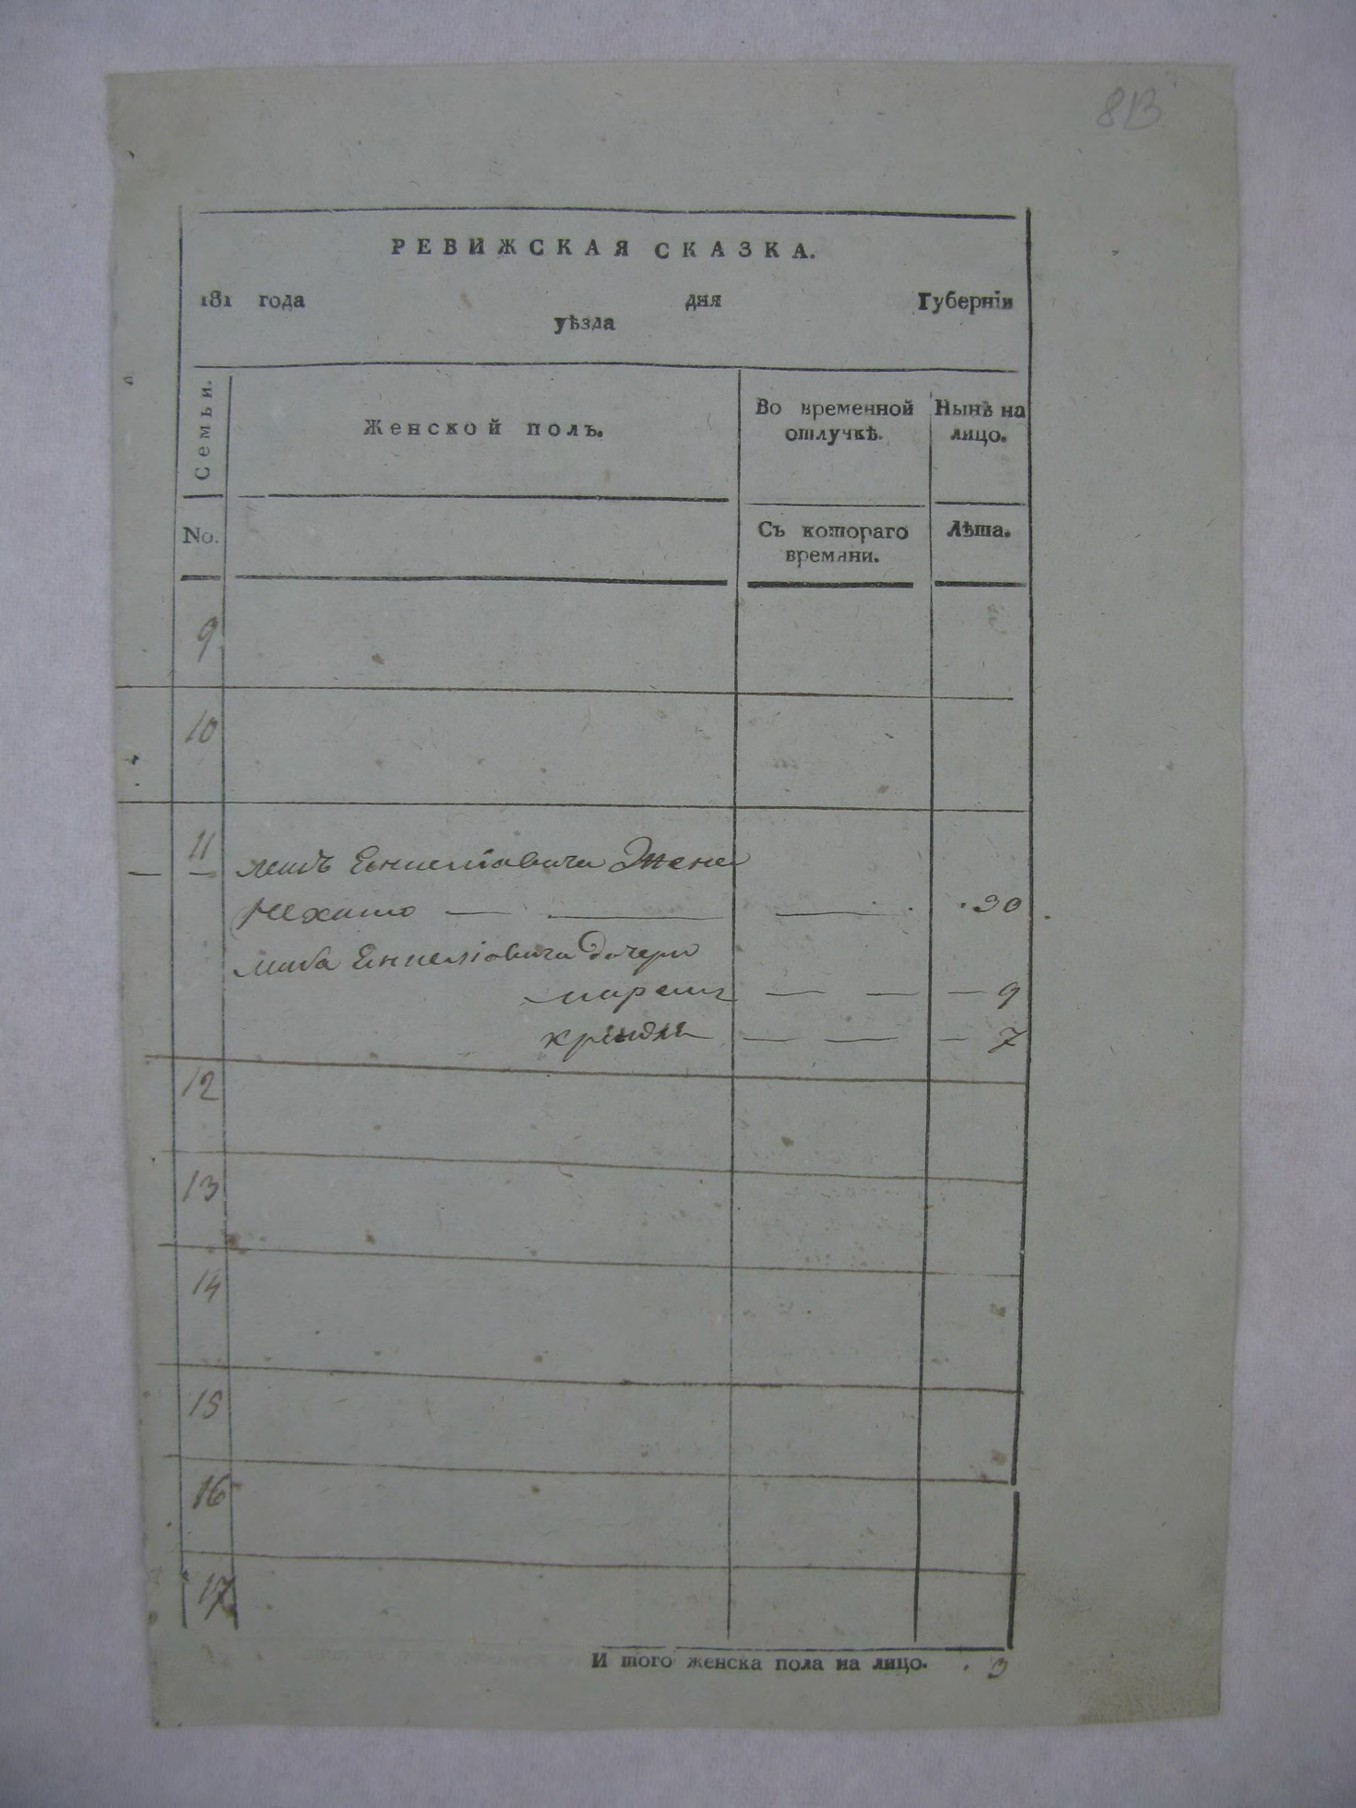 8В
РЕВИЖСКАЯ СКАЗКА.
181 года дня Губерніи
уѣзда
Семьи.
Женской полъ.
Во временной отлучкѣ.
Нынѣ на лицо.
No.
Съ котораго времяни.
Лѣта.
9
10
11 Жена
30
дочери
9
7
12
13
14
15
16
17
И того женска пола на лицо. 3